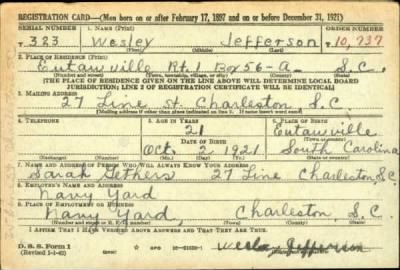 REGISTRATION CARD—(Men born on or after February 17, 1897 and on or before December 31, 1921)
SERIAL NUMBER 1. NAME (Print) ORDER NUMBER
T 323 Wesley Jefferson T 10,737
(First) (Middle) (Last)
2. PLACE OF RESIDENCE (Print)
Eutawville Rt. 1 Box 56-A S.C.
(Number and street) (Town, township, village, or city) (County) (State)
[THE PLACE OF RESIDENCE GIVEN ON THE LINE ABOVE WILL DETERMINE LOCAL BOARD
JURISDICTION; LINE 2 OF REGISTRATION CERTIFICATE WILL BE IDENTICAL]
3. MAILING ADDRESS
27 Line St. Charleston S.C.
4. TELEPHONE 5. AGE IN YEARS 6. PLACE OF BIRTH
21 Eutawville
DATE OF BIRTH (Town or county)
Oct. 2, 1921 South Carolina
(Exchange) (Number) (Mo.) (Day) (Yr.) (State or country)
7. NAME AND ADDRESS OF PERSON WHO WILL ALWAYS KNOW YOUR ADDRESS
Sarah Gethers 27 Line Charleston, S.C.
8. EMPLOYER'S NAME AND ADDRESS
Navy Yard
9. PLACE OF EMPLOYMENT OR BUSINESS
Navy Yard, Charleston, S.C.
(Number and street or R. F. D. number) (Town) (County) (State)
I AFFIRM THAT I HAVE VERIFIED ABOVE ANSWERS AND THAT THEY ARE TRUE.
D. S. S. Form 1
(Revised 1-1-42) (over) Wesley Jefferson